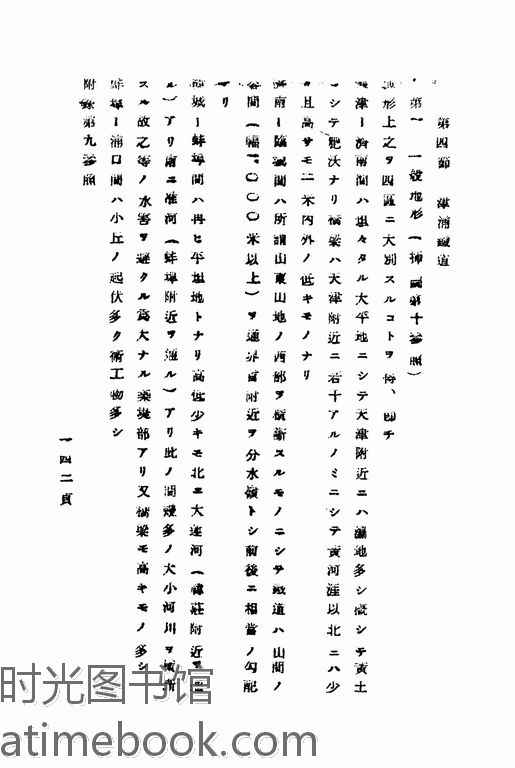 第四節　津浦鐵道
第一　一般地形（揷圖第十參照）
地形上之ヲ四區ニ大別スルコトヲ得、即チ
津ー濟南間ハ坦々タル大平地ニシテ天津附近ニハ濕地多シ概シテ黃土
シテ肥沃ナリ橋梁ハ天津附近ニ若干アルノミニシテ黃河涯以北ニハ少
且高サモ二米內外ノ低キモノナリ
南ー臨城間ハ所謂山東山地ノ西部ヲ橫斷スルモノニシテ鐵道ハ山間ノ
谷間（幅一、〇〇〇米以上）ヲ通 附近ヲ分水嶺トシ前後ニ相當ノ勾配
リ
城ー蚌埠間ハ再ヒ平坦地トナリ高低少キモ北ニ大運河（韓莊附近ヲ
ル）アリ南ニ淮河（蚌埠附近ヲ流ル）アリ此ノ間煙多ノ大小河川ヲ橫斷
スル故之等ノ水害ヲ避クル爲大ナル築堤部アリ又橋梁モ高キモノ多シ
蚌埠ー浦口間ハ小丘ノ起伏多ク術工物多シ
附錄第九參照
一四二頁
时光图书馆
atimebook.com